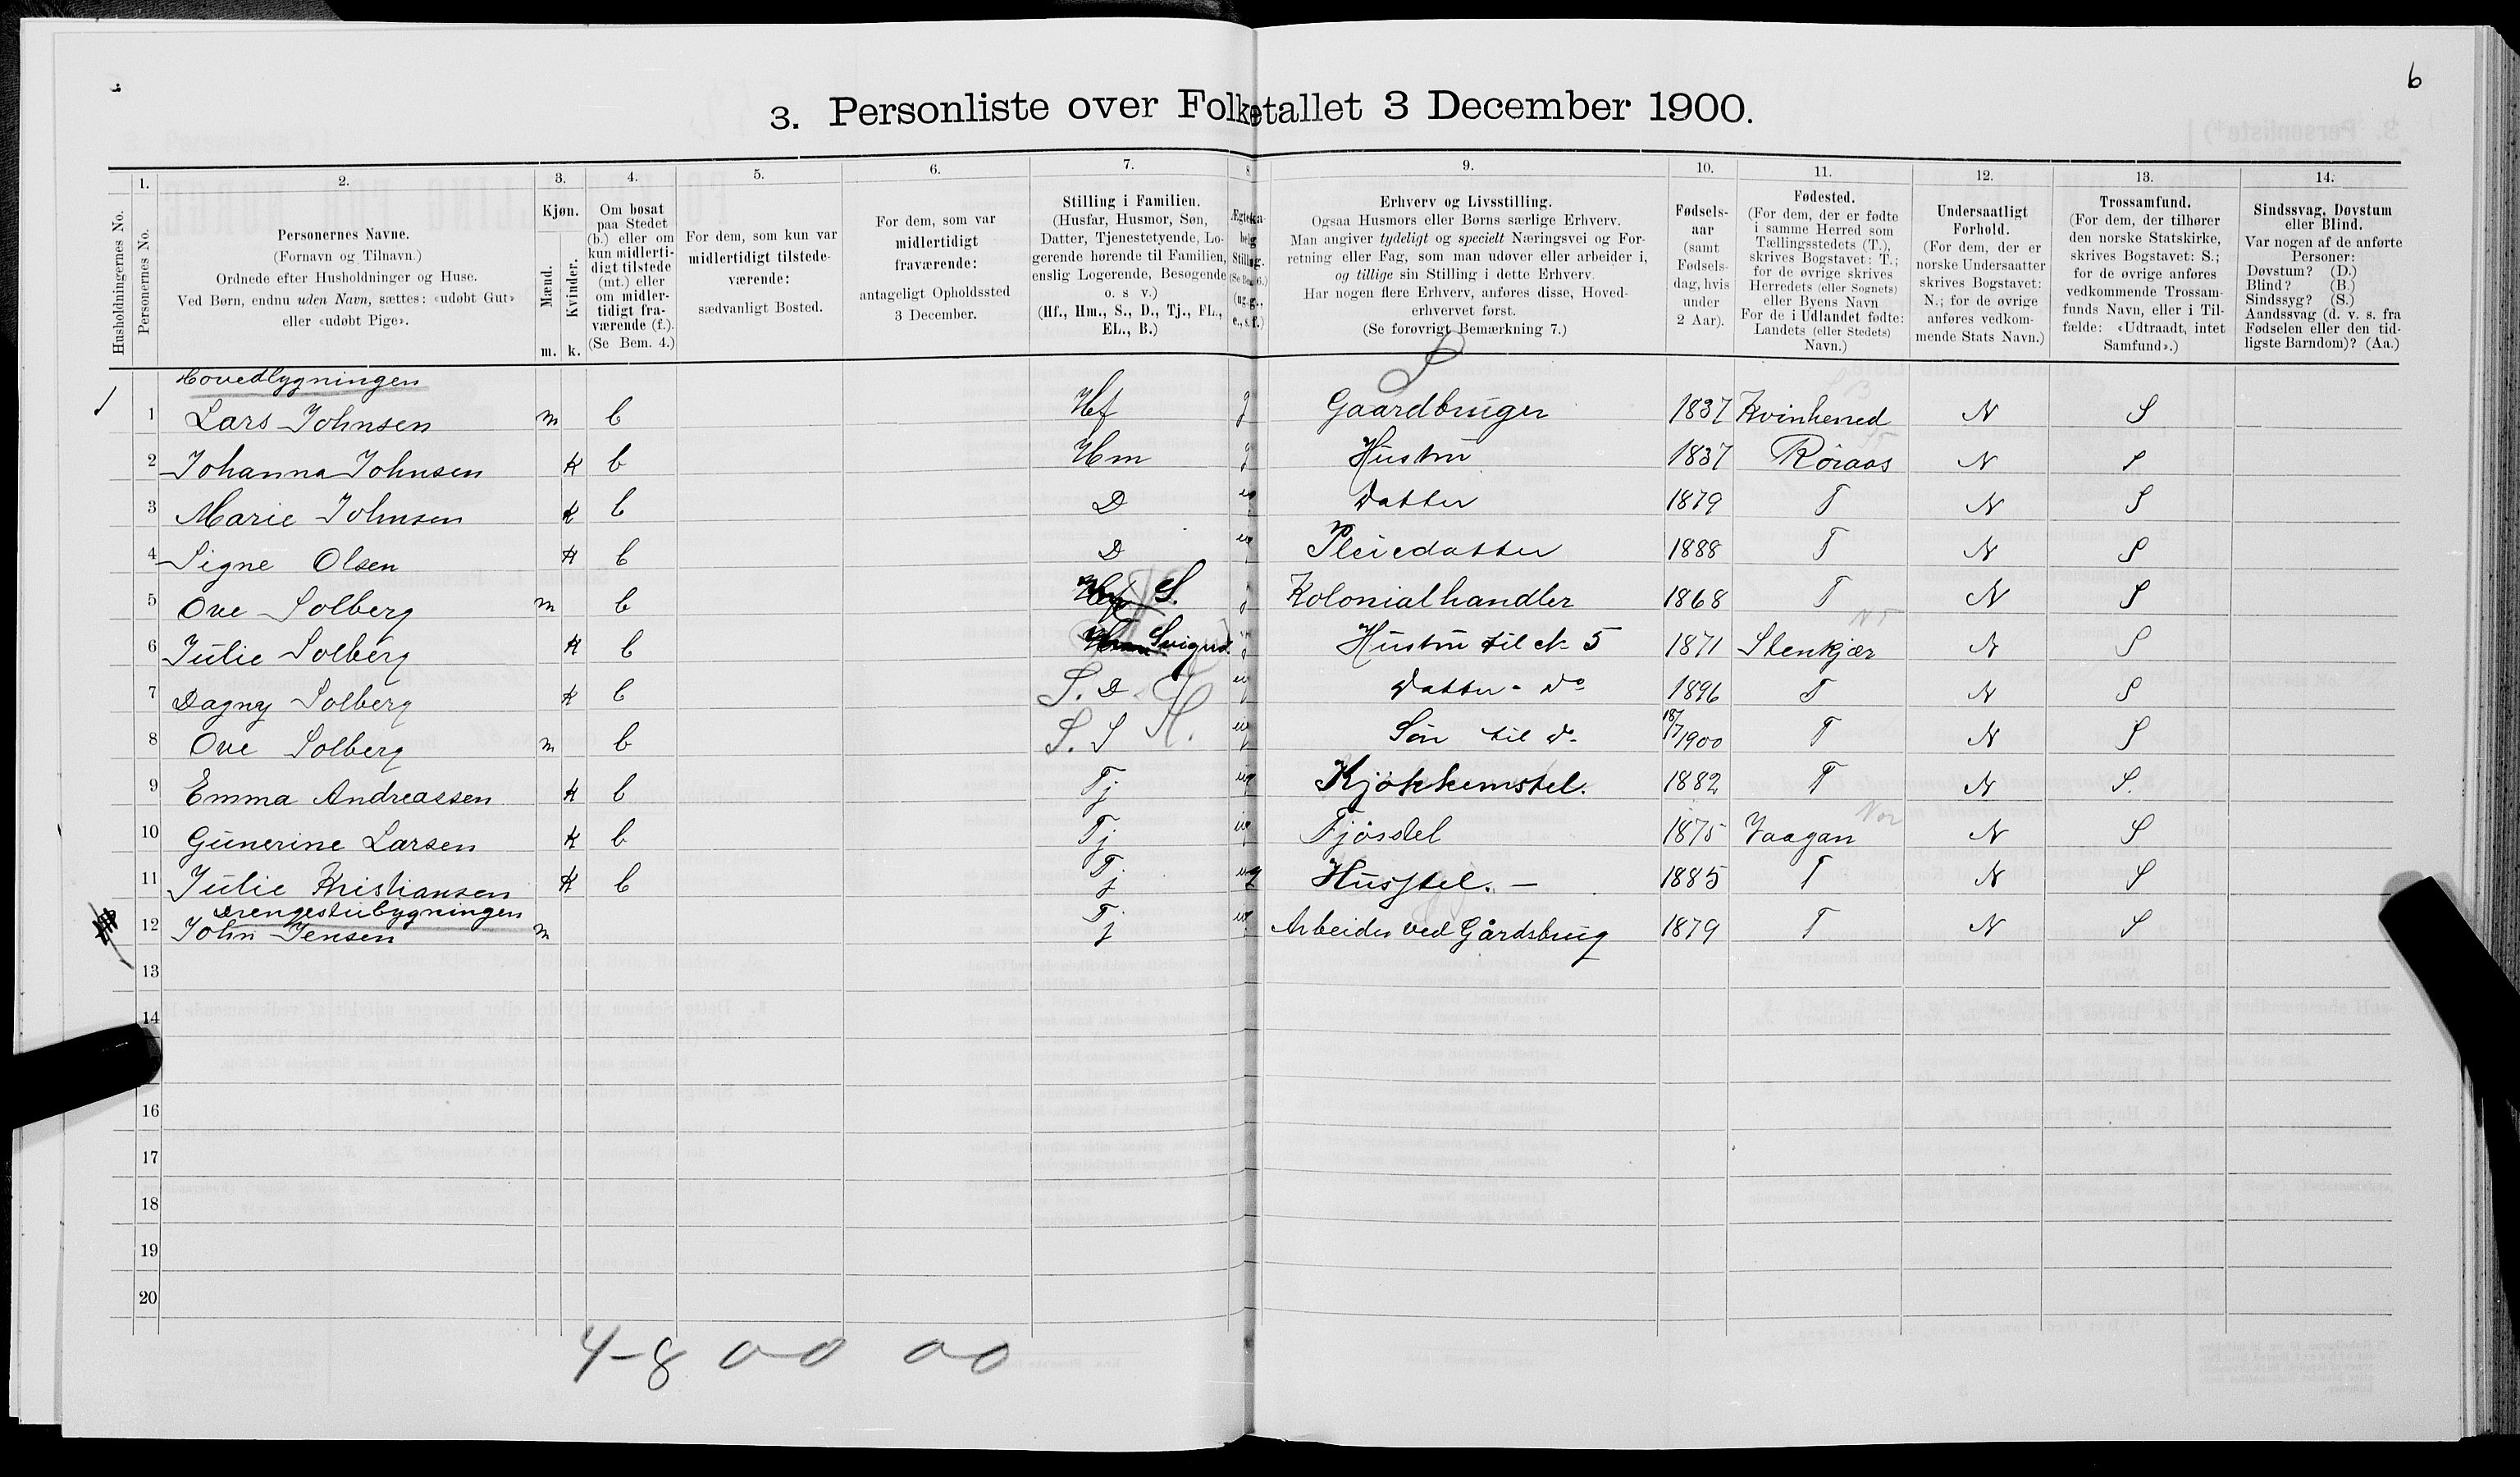 6
3. Personliste over Folketallet 3 December 1900.
1. 2. 3. 4. 5. 6. 7. 8. 9. 10. 11. 12. 13. 14.
Husholdningernes No.
Personernes No.
Personernes Navne.
(Fornavn og Tilnavn.)
Ordnede efter Husholdninger og Huse.
Ved Børn, endnu uden Navn, sættes: «udøbt Gut»
eller «udøbt Pige».
Kjøn.
Mænd.
Kvinder.
m. k.
Om bosat
paa Stedet
(b.) eller om
kun midlerti-
digt tilstede
(mt.) eller
om midler-
tidigt fra-
værende (f.).
(Se Bem. 4.)
For dem, som kun var
midlertidigt tilstede-
værende:
sædvanligt Bosted.
For dem, som var
midlertidigt
fraværende:
antageligt Opholdssted
3 December.
Stilling i Familien.
(Husfar, Husmor, Søn,
Datter, Tjenestetyende, Lo-
gerende hørende til Familien,
enslig Logerende, Besøgende
o. s v.)
(Hf., Hm., S., D., Tj., FL.,
EL., B.)
Erhverv og Livsstilling.
Ogsaa Husmors eller Børns særlige Erhverv.
Man angiver tydeligt og specielt Næringsvei og For-
retning eller Fag, som man udøver eller arbeider i,
og tillige sin Stilling i dette Erhverv.
Har nogen flere Erhverv, anføres disse, Hoved-
erhvervet først.
(Se forøvrigt Bemærkning 7.)
Fødsels-
aar
(samt
Fødsels-
dag, hvis
under
2 Aar).
Fødested.
(For dem, der er fødte
i samme Herred som
Tællingsstedets (T.),
skrives Bogstavet: T.;
for de øvrige skrives
Herredets (eller Sognets)
eller Byens Navn
For de i Udlandet fødte:
Landets (eller Stedets)
Navn.)
Undersaatligt
Forhold.
(For dem, der er
norske Undersaatter
skrives Bogstavet:
N.; for de øvrige
anføres vedkom-
mende Stats Navn.)
Trossamfund.
(For dem, der tilhører
den norske Statskirke,
skrives Bogstavet: S.;
for de øvrige anføres
vedkommende Trossam-
funds Navn, eller i Til-
fælde: «Udtraadt, intet
Samfund».)
Sindssvag, Døvstum
eller Blind.
Var nogen af de anførte
Personer:
Døvstum? (D.)
Blind? (B.)
Sindssyg? (S.)
Aandssvag (d. v. s. fra
Fødselen eller den tid-
ligste Barndom)? (Aa.)
Hovedbygningen
1 Lars Johnsen m b Hf g Gaardbruger 1837 Kvinherred N S
2 Johanna Johnsen K b Hm g Hustru 1837 Röraas N S
3 Marie Johnsen K b D ug Datter 1879 T N S
4 Signe Olsen K b D ug Pleiedatter 1888 T N S
5 Ove Solberg m b Hf S. g Kolonialhandler 1868 T N S
6 Julie Solberg K b Hm Svigerd. g Hustru til N. 5 1871 Stenkjær N S
7 Dagny Solberg K b S. D. ug Datter - Do 1896 T N S
8 Ove Solberg m b S. S ug Søn til d. 18/7 1900 T N S
9 Emma Andreassen K b Tj ug Kjøkkenstel. 1882 T N S.
10 Gunerine Larsen K b Tj ug Fjösstel 1875 Vaagan N S
11 Julie Kristiansen K b Tj ug Husstel. - 1885 T N S
Drengestubygningen
12 John Jensen m Tj ug Arbeider ved Gårdsbrug 1879 T N S
13
14
16
17
18
19
20
4-8 0-0 0-0